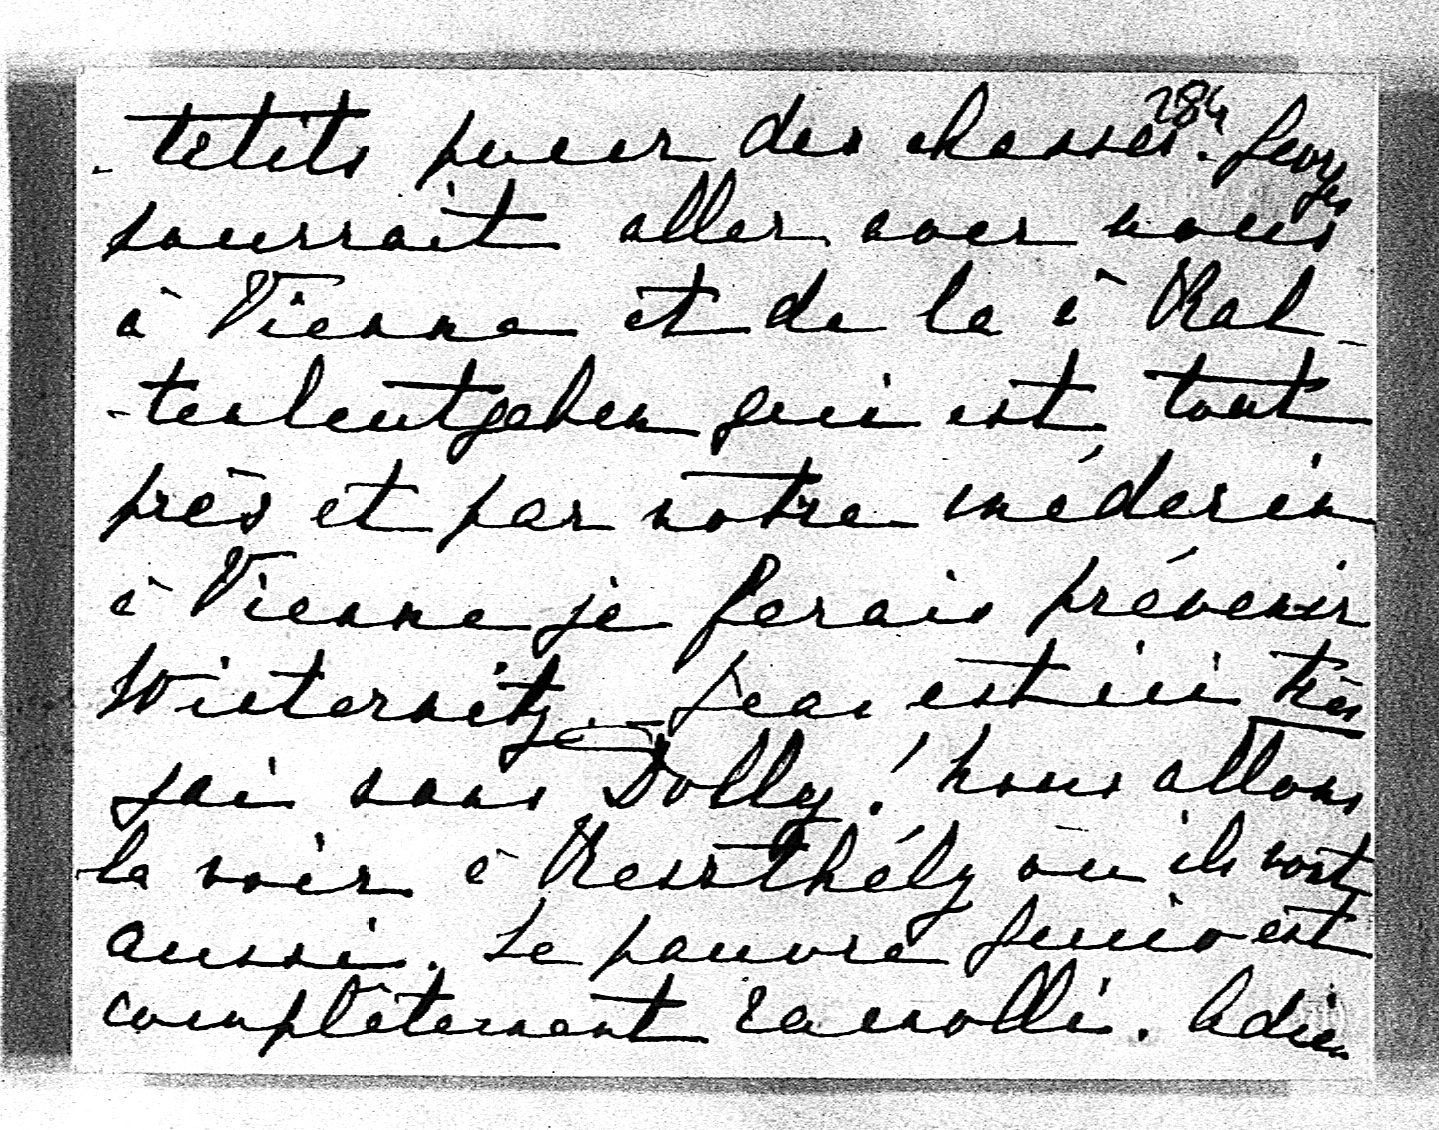 284
-tetits pour des chasses. Georges
pourrait aller avec nous
à Vienne et de la à Kal-
-tenleutgeben qui est tout
près et par notre médecin
à Vienne je ferais prévenir
Winternitz. Jean est ici très
gai sans Dolly! Nous allons
la voir à Keszthély où ils vont
aussi. Le pauvre est
complètement ramolli. Adieu